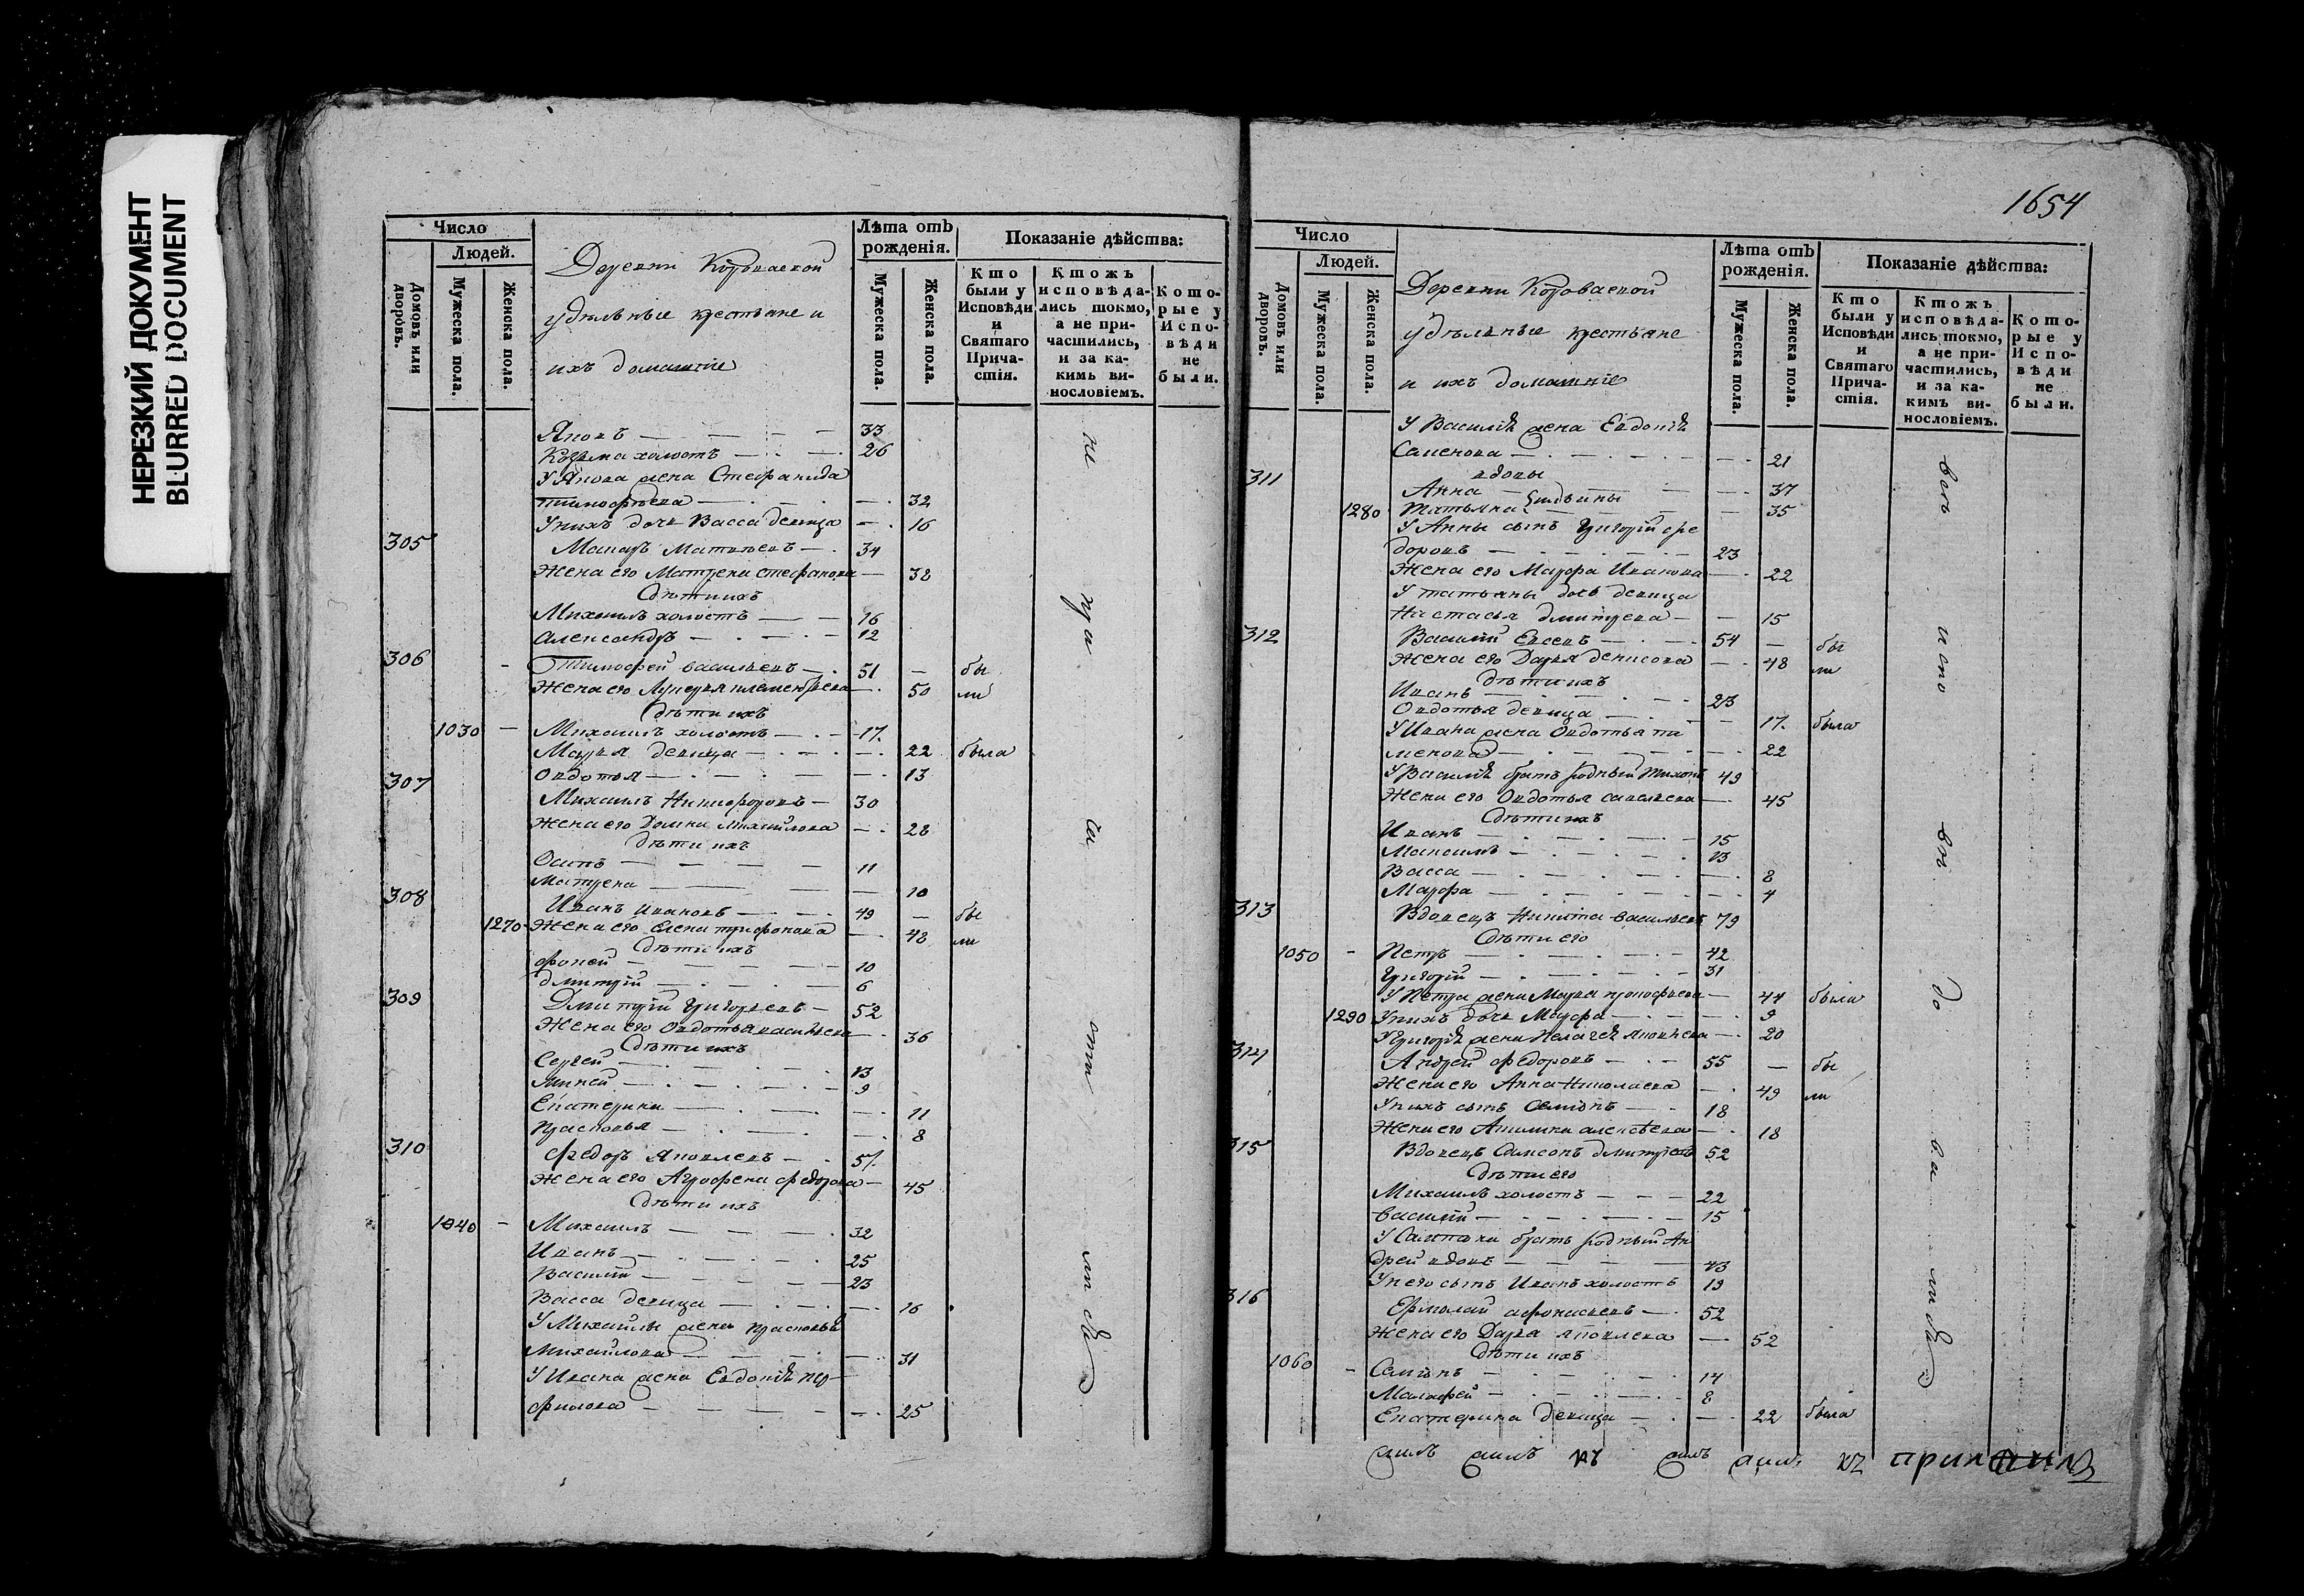 НЕРЕЗКИЙ ДОКУМЕНТ
BLURRED DOCUMENT
Число
Людей.
Домовъ или дворовъ.
Мужеска пола.
Женска пола.
Деревни
удѣльные крестьяне и
ихъ домашние
Лѣта отъ рожденія.
Мужеска пола.
Женска пола.
Показаніе дѣйства:
Кто были у Исповѣди и Святаго Причастія.
Ктожъ исповѣдались токмо, а не причастились, и за какимъ винословіемъ.
Которые у Исповѣди не были.
Яковъ 33
Козьма холостъ 26
У Якова жена Стефанида
тимофѣева 32
У нихъ дочь Васса девица 16
305 Макаръ Матвѣевъ 34
Жена его Матрена стефанова 38
Дѣти ихъ
Михаилъ холостъ 16
александръ 12
306 Тимофей васильевъ 51 бы
Жена его 50 ли
Дѣти ихъ
1030 Михаилъ холостъ 17
Марья девица 22 была
овдотья 13
307 Михаилъ Никифоровъ 30
Жена его Домна михайлова 28
Дѣти ихъ
Осипъ 11
Матрена 10
308 Иванъ ивановъ 49 бы
1270 Жена его Елена трифонова 48 ли
Дѣти ихъ
фокей 10
дмитрій 6
309 Дмитрій григорьевъ 52
Жена его Овдотья васильева 36
Дѣти ихъ
Сергей 13
михей 9
Екатерина 11
Прасковья 8
310 Федоръ яковлевъ 57
Жена его Агрофена федорова 45
Дѣти ихъ
1040 Михаилъ 32
Иванъ 25
Василій 23
Васса девица 16
У Михаилы жена прасковья
Михайлова 31
У Ивана жена Евдокія пер
филова 25
не при ча сти ли сь
1654
Число
Людей.
Домовъ или дворовъ.
Мужеска пола.
Женска пола.
Деревни
удѣльные крестьяне
и ихъ домашніе
Лѣта отъ рожденія.
Мужеска пола.
Женска пола.
Показаніе дѣйства:
Кто были у Исповѣди и Святаго Причастія.
Ктожъ исповѣдались токмо, а не причастились, и за какимъ винословіемъ.
Которые у Исповѣди не были.
У Василія жена Евдокія
Семенова 21
311 вдовы
Анна 37
1280 Татьяна 35
У Анны сынъ Григорій фе
доровъ 23
Жена его Марфа Иванова 22
У татьяны дочь девица
Настасья дмитрева 15
312 Василій Евсевъ 54 бы
Жена его Дарья денисова 48 ли
Дѣти ихъ
Иванъ 23
Овдотья девица 17 была
У Ивана жена Овдотья па
22
У Василія братъ родный тихонъ 49
Жена его Овдотья савельева 45
Дѣти ихъ
Иванъ 15
Максимъ 13
Васса 8
Марфа 4
313 Вдовецъ Никита васильевъ 79
Дѣти его
1050 Петръ 42
Григорій 31
У Петра жена Марья прокофьева 44 была
1290 У нихъ дочь Марфа 9
У Григорія жена Пелагея яковлева 20
314 Андрей федоровъ 55 бы
Жена его Анна Николаева 49 ли
У нихъ сынъ Семіонъ 18
Жена его Акилина алексѣева 18
315 Вдовецъ Самсонъ дмитріевъ 52
Дѣти его
Михаилъ холостъ 22
василій 15
У Самсона братъ родный Ан
дрей вдовъ 43
У него сынъ Иванъ холостъ 19
316 Ермолай афонасьевъ 52
Жена его Дарья яковлева 52
Дѣти ихъ
1060 Семіонъ 14
Малафей 8
Екатерина девица 22 была